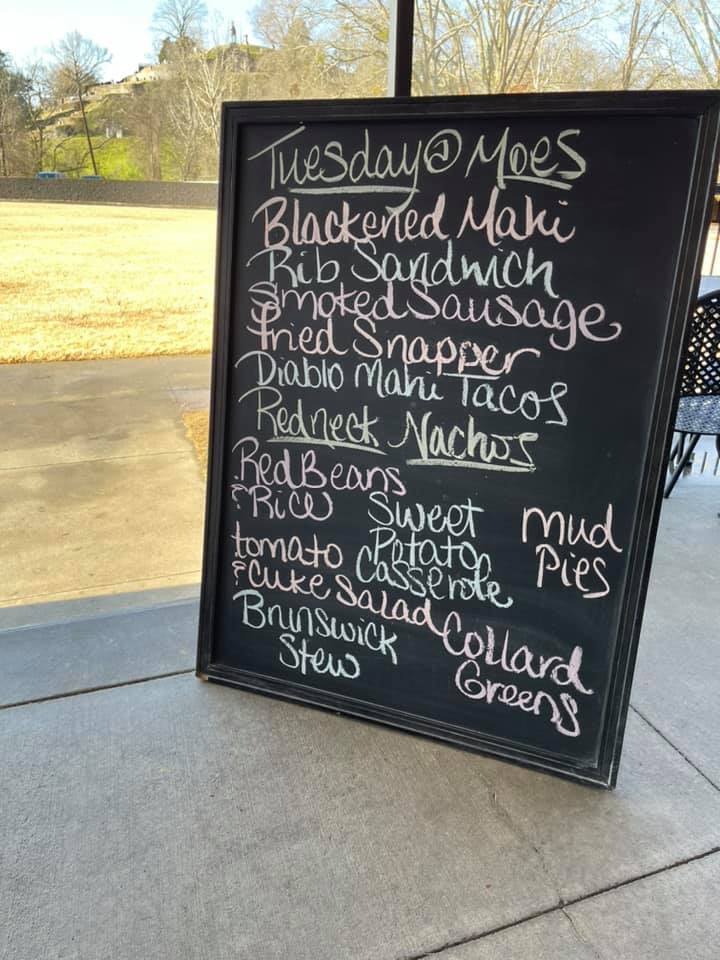 Tuesday @ Moes
Blackened Mahi
Rib Sandwich
Smoked Sausage
Fried Snapper
Diablo Mahi Tacos
Redneck Nachos
Red Beans
& Rice
tomato
& Cuke Salad
Brunswick
Stew
Sweet
Potato
Casserole
Collard
Greens
Mud
Pies